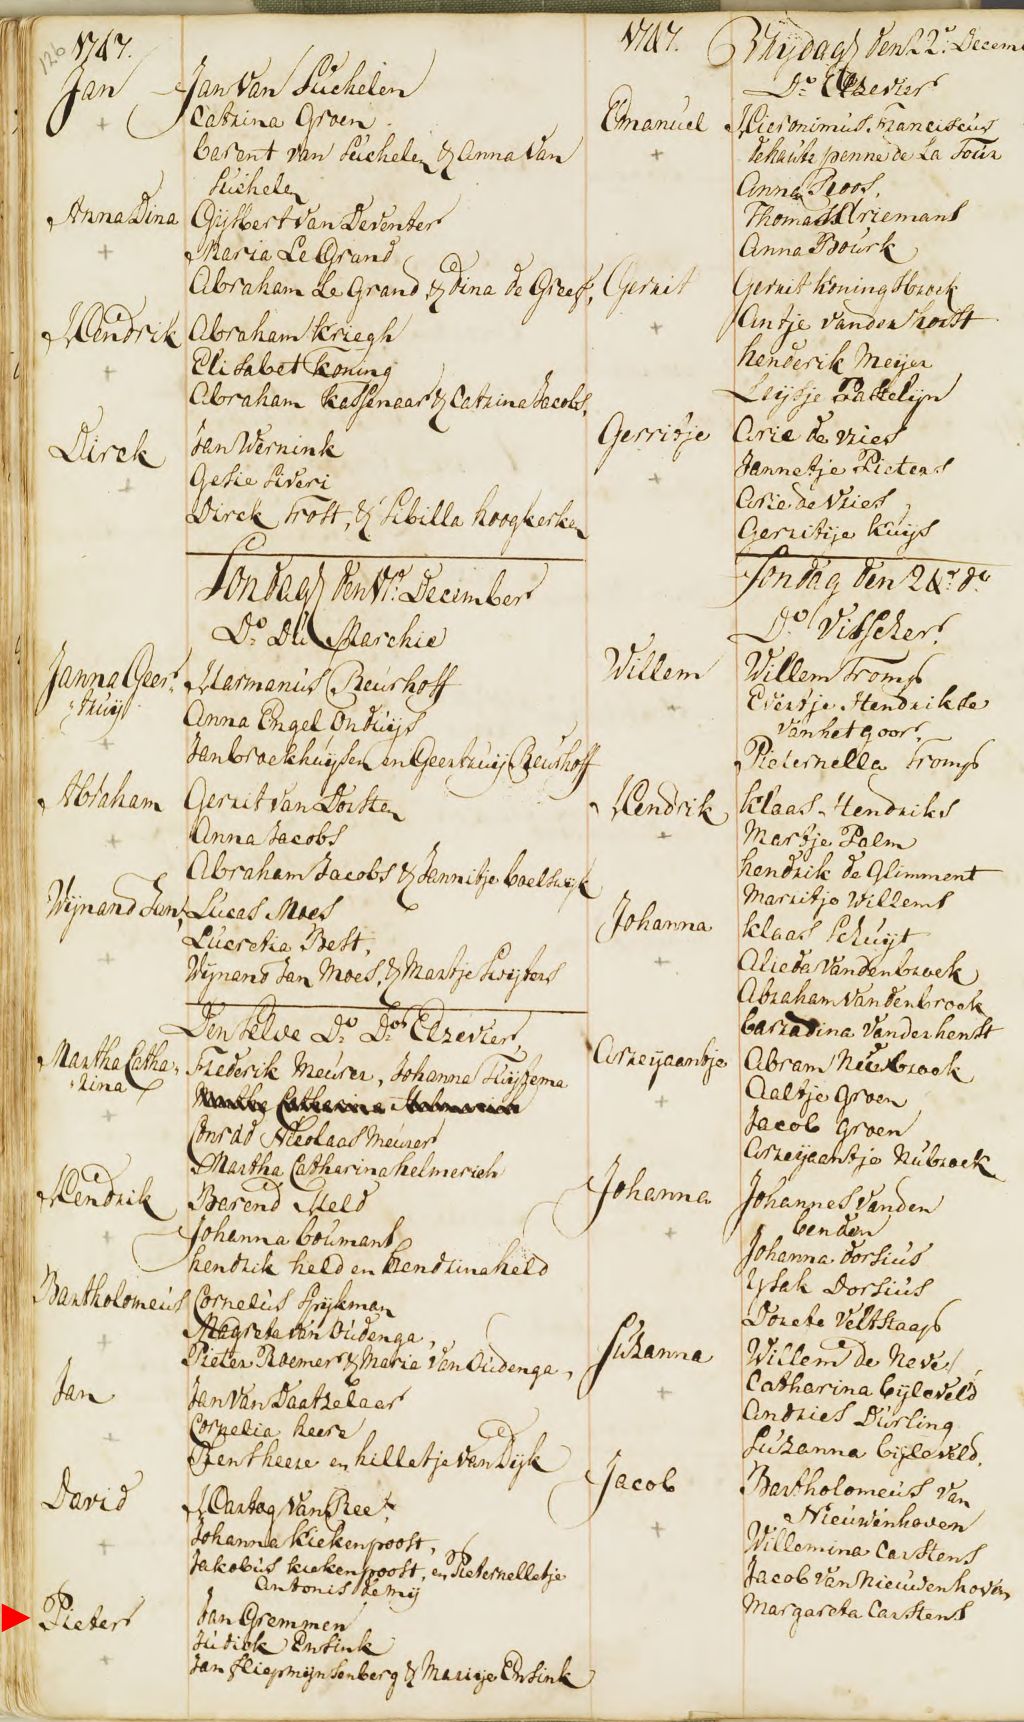 126 1747.
Jan Jan Van Suchelen
Catrina Groen
barent van Suchelen & Anna Van
Suchelen
Anna Dina Gijsbert van Deventer
Maria Le Grand
Abraham Le Grand & Dina de Greef,
Hendrik Abraham kriegh
Elisabet koning
Abraham kassenaar & Catrina Jacobs,
Dirck Jan Wernink
Gesie Siveri
Dirck Trost, & Sibilla hoogkerken
Sondag den December
Do. Du Marchie
Janna Geer-
truij Harmanus Beurhoff
Anna Engel Onduijs
Jan broekhuijsen en Geertruij Beurhoff
Abraham Gerrit van Dorsten
Anna Jacobs
Abraham Jacobs & Jannitje
Wijnand Jan, Lucas Moes
Lucretia Best,
Wijnand Jan Moes, & Martje Swijters
Den Selve Do. Ds. Elzevier,
Martha Catha-
rina Frederik Meurer, Johanna
Conrad Nicolaas Meurer
Martha Catharina helmerich
Hendrik Barend Held
Johanna boumans
hendrik held en hendrina held
Bartholomeus Cornelius Spijkman
Magreta van Oudenga,
Pieter Roemer & Maria Van Oudenga,
Jan Jan Van Daatzelaar
Cornelia heere
heere en hilletje van Dijk
David Hartog Van Ree,
Johanna kiekenpoost,
Jakobus kiekenpoost, en Pieternelletje
Antonis demij
Pieter Jan Gremmen
Judick Ensink
Jan & Marije Ensink
1747. Vrijdag den 22e. Decem
Do. Elzevier
Emanuel Hieronimus Franciscus
dehaute penne de La Tour
Anna Roos,
Thomas Kriemans
Anna Bourk
Gerrit Gerrit koning broek
Antje vander horst
henderik Meijer
Leijsje Pattelijn
Gerritje Arie de vries
Jannetje Pieters
Arie de Vries
Gerritije Kuijs
Sondag den 24e. do.
Do. Visscher.
Willem Willem Tromp
Evertje Hendrikse
van het goor.
Pieternella Tromp
Hendrik klaas Hendriks
Martje Palm
hendrik de Glimment
Marritje Willems
Johanna klaas Schuijt
Alieda vandenbroek
Abraham vandenbroek
barradina vanderhenst
Arreijaantje Abram Nubroek
Aaltje groen
Jacob groen
Arreijaantje Nubroek
Johanna Johannes vanden
benden
Johanna Dorsius
Ysak Dorsius
Dorete Veltkaap
Suzanna Willem de Neve
Catharina bijleveld
Andries Durling
Suzanna bijleveld,
Jacob Bartholomeus van
Nieuwenhoven
Willemina Carstens
Jacob van Nieuwenhoven
Margareta Carstens